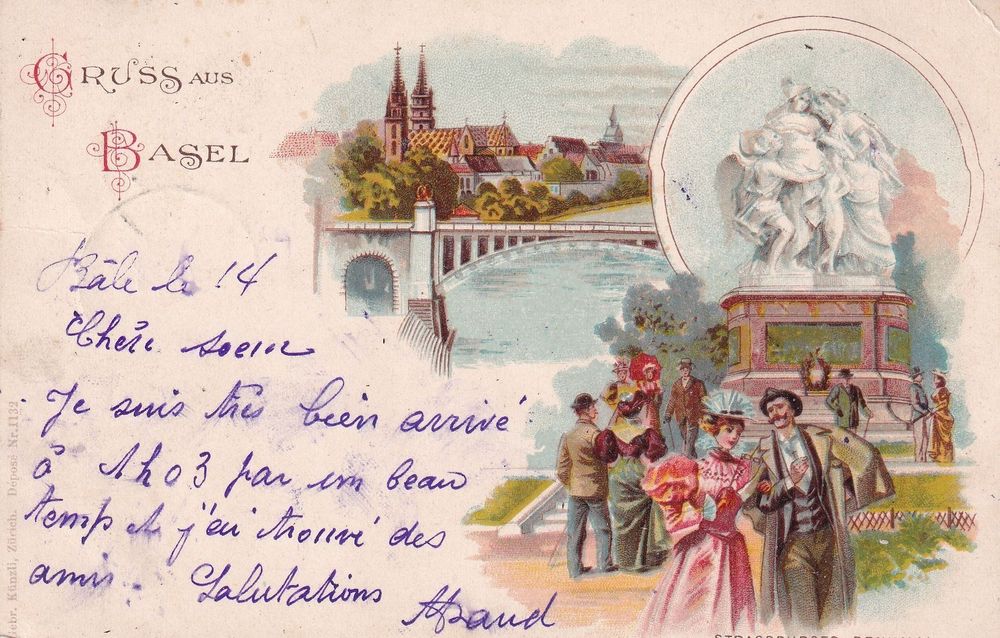 GRUSS AUS
BASEL
Bâle le 14
Chère soeur
Je suis très bien arrivé
à 1h03 par un beau
temp et j'ai trouvé des
amis. Salutations
Gebr. Künzli, Zürich. Déposé Nr. 1132